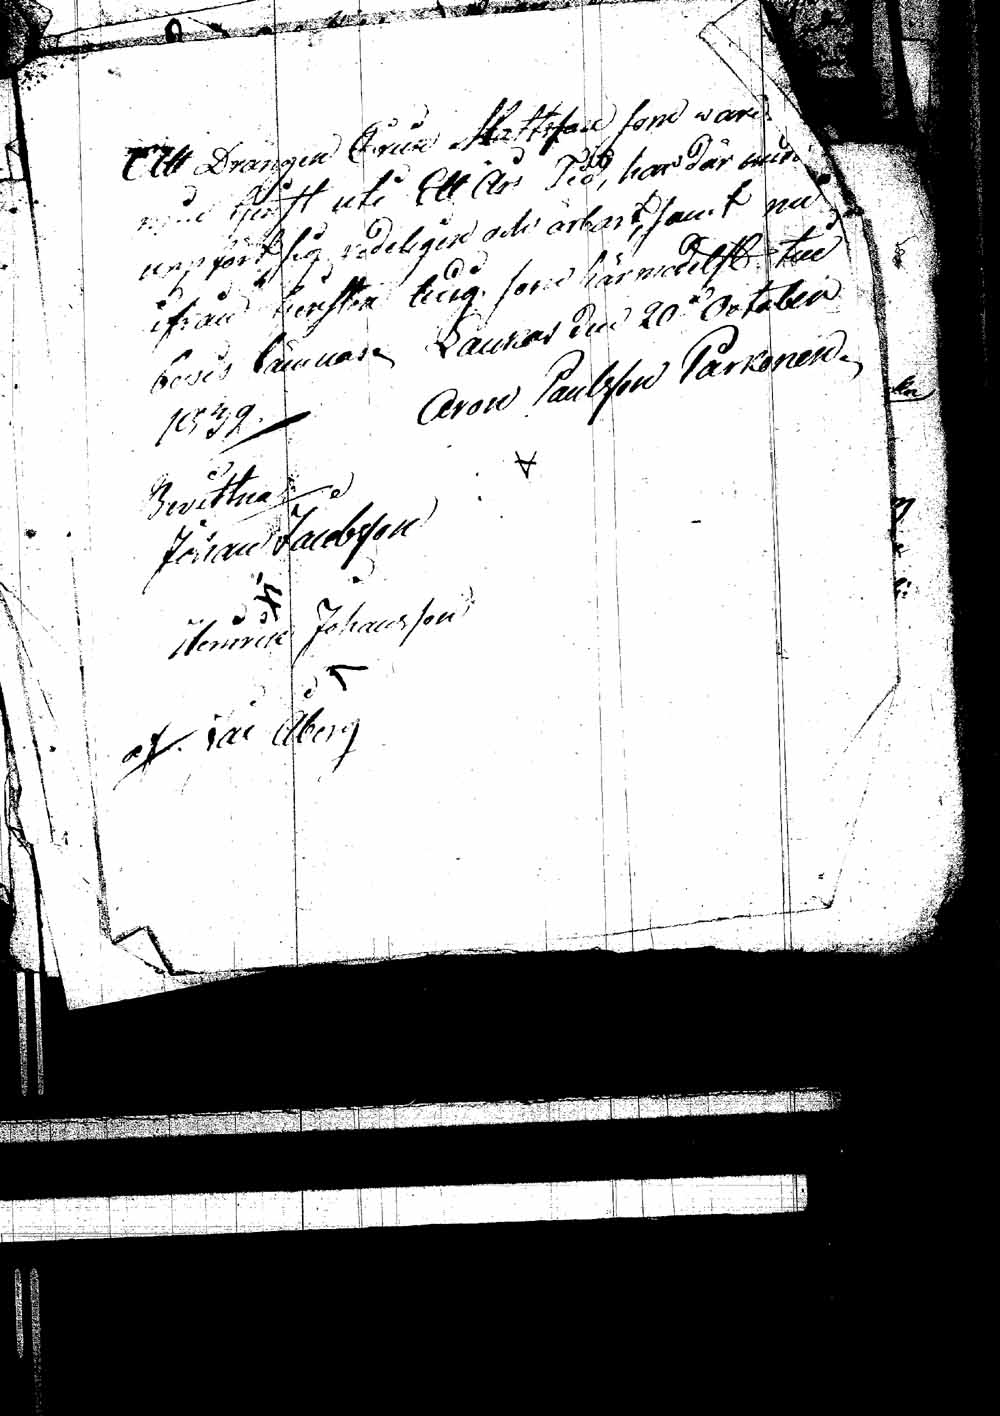 Att Drängen Grus Mattsson som warit
min tjenst uti Ett Års Tid, har där under
uppfört sig redeligen och ärbart, samt nu
ifrån tjensten ledig. som härmedelst till
bevis lämnas, Laukas den 20de October
1839.
Aron Paulsson Parkonen.
Bevittna
Johan Jacobsson
Henrik Johansson
af. Åberg